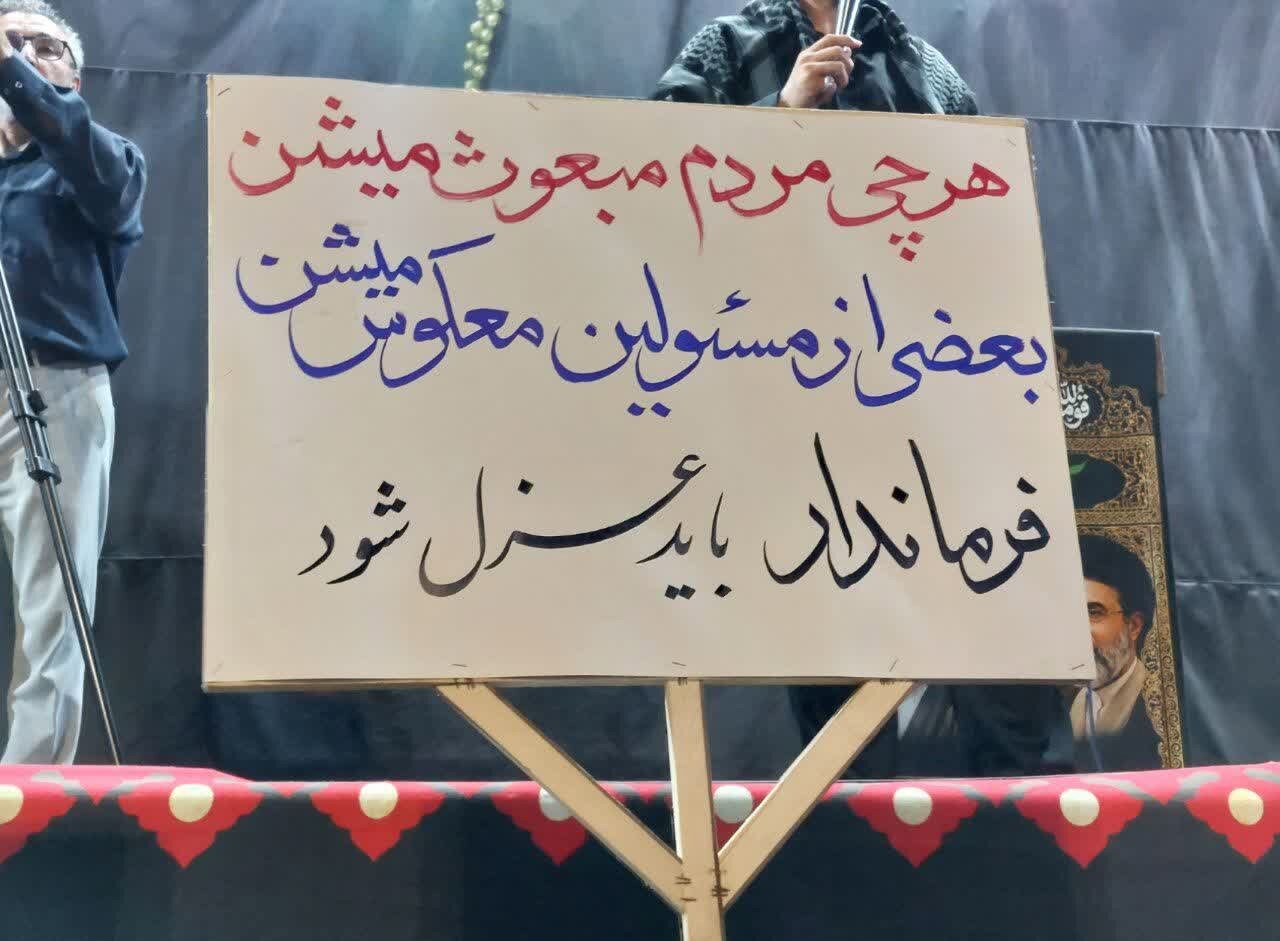 هرچی مردم مبعوث میشن
بعضی از مسئولین معکوس میشن
فرماندار باید عزل شود